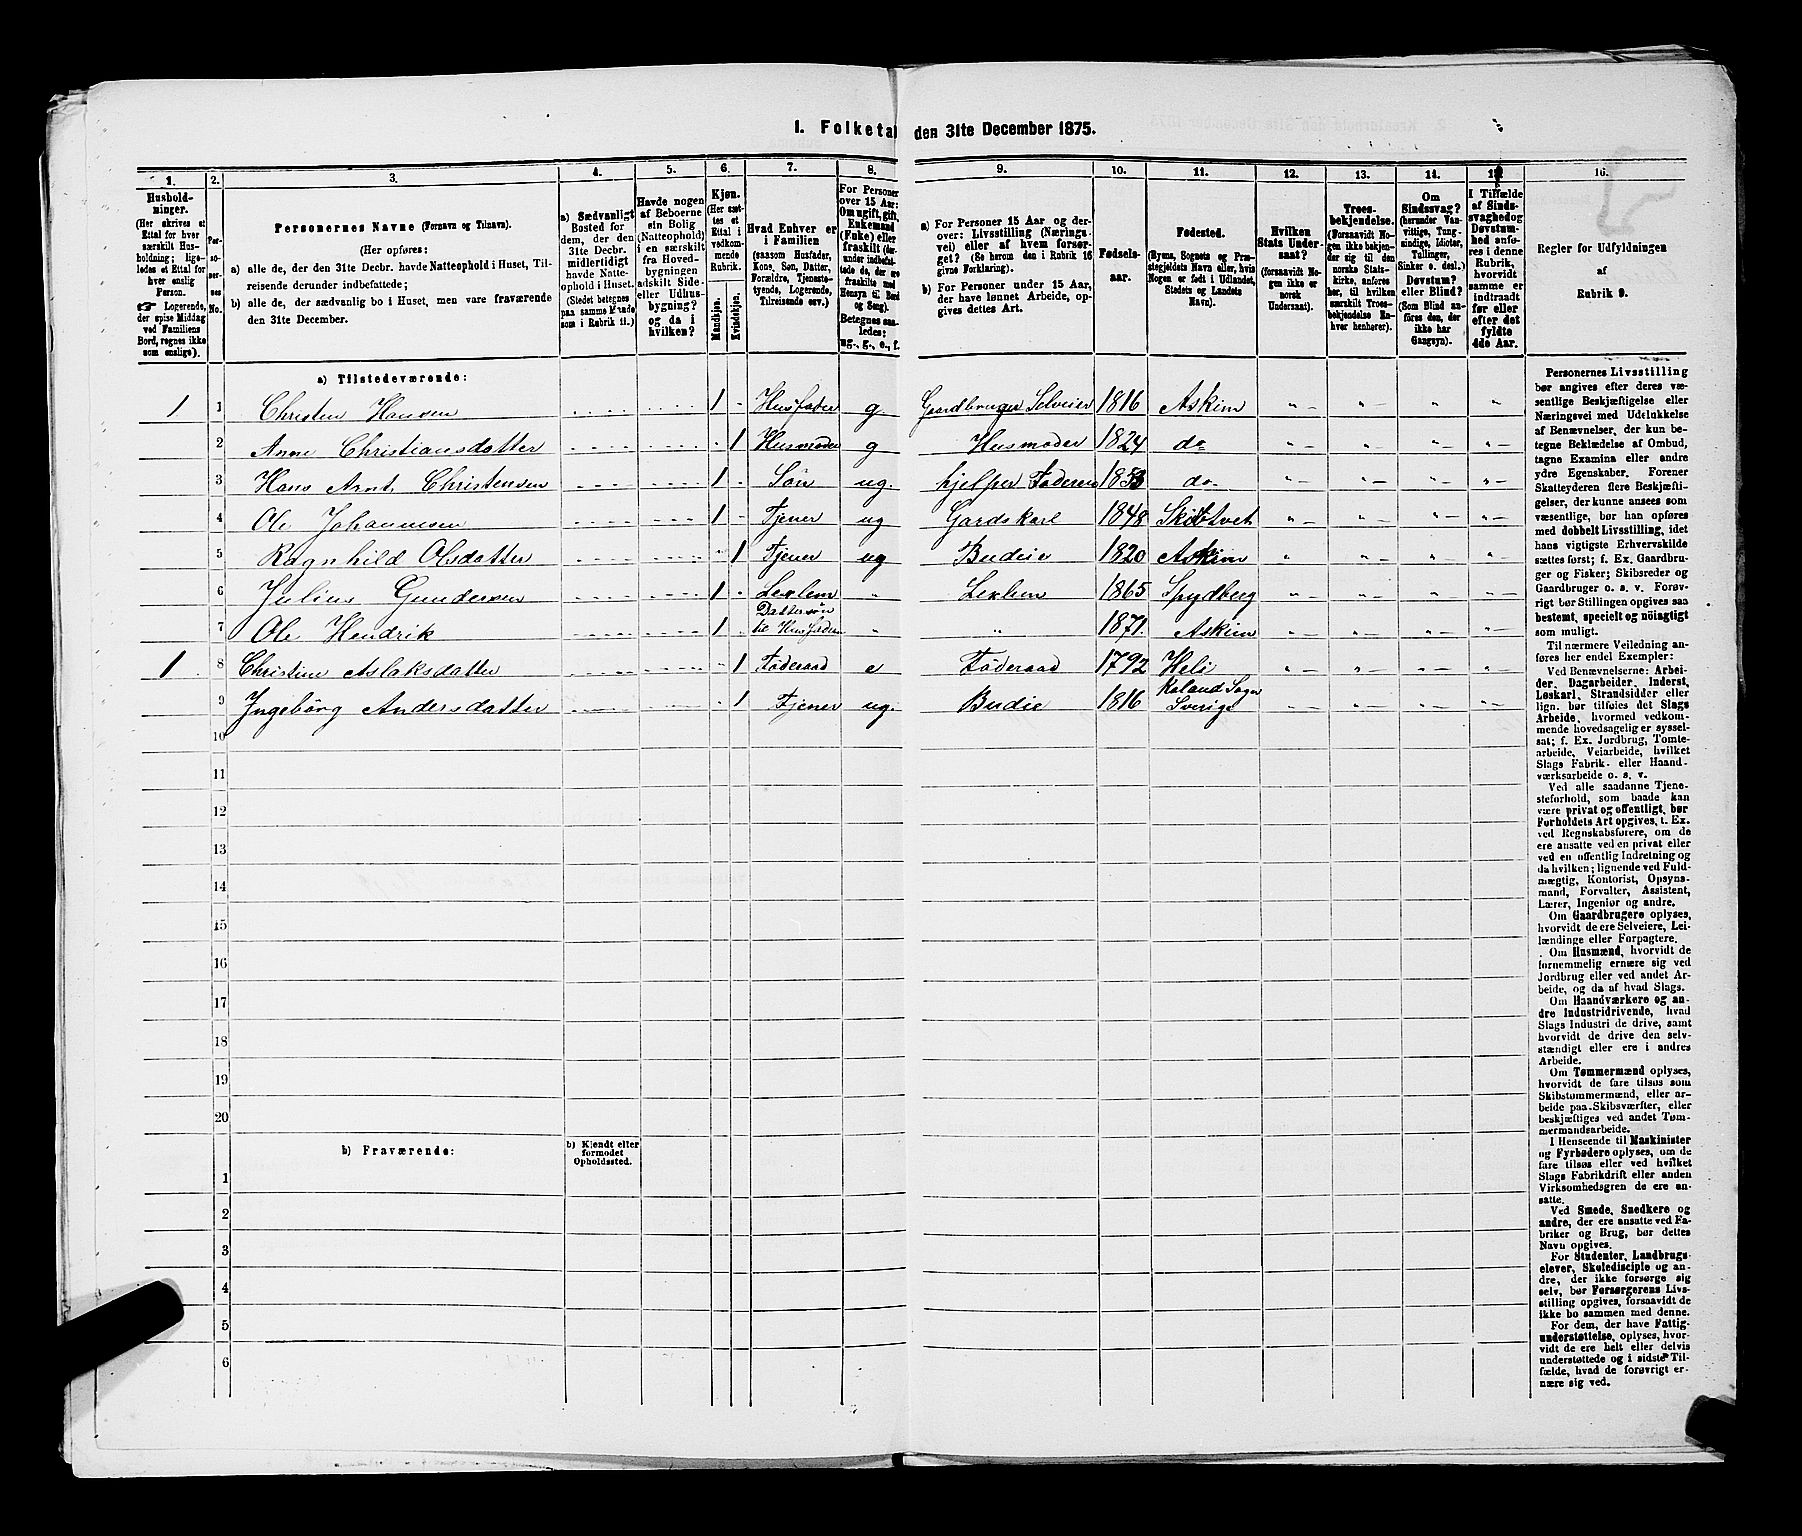 1. Folketa den 31te December 1875.
1. 2. 3. 4. 5. 6. 7. 8. 9. 10. 11. 12. 13. 14. 16.
Husholdninger. (Her skrives et Ettal for hver særskilt Husholdning; ligeledes et Ettal for enslig Person. ☞ Logerende, der spise Middag ved Familiens Bord, regnes ikke som enslige).
Personernes No.
Personernes Navne (Fornavn og Tilnavn).
(Her opføres:
a) alle de, der den 31te Decbr. havde Natteophold i Huset, Tilreisende derunder indbefattede;
b) alle de, der sædvanlig bo i Huset, men vare fraværende den 31te December.
a) Sædvanligt Bosted for dem, der den 31te Decbr. midlertidigt havde Natteophold i Huset. (Stedet betegnes paa samme Maade som i Rubrik 11.)
Havde nogen af Beboerne sin Bolig (Natteophold) i en særskilt fra Hovedbygningen adskilt Side- eller Udhusbygning? og da i hvilken?
Kjøn. (Her sættes et Ettal i vedkommende Rubrik.
Mandkjøn. Kvindekjøn.
Hvad Enhver er i Familien (saasom Husfader, Kone, Søn, Datter, Forældre, Tjenestetyende, Logerende, Tilreisende osv.)
For Personer over 15 Aar: Om ugift, gift, Enkemand (Enke) eller fraskilt (derunder indbefattede de, der ere fraskilte med Hensyn til Bord og Seng). Betegnes saaledes: ug., g., e., f.
a) For Personer 15 Aar og derover: Livsstilling (Næringsvei) eller af hvem forsørget? (Se herom den i Rubrik 16 givne Forklaring).
b) For Personer under 15 Aar, der have lønnet Arbeide, opgives dettes Art.
Fødselsaar.
Fødested. (Byens, Sognets og Præstegjeldets Navn eller, hvis Nogen er født i Udlandet, Stedets og Landets Navn).
Hvilken Stats Undersaat? (forsaavidt Nogen ikke er norsk Undersaat).
Troesbekjendelse. (Forsaavidt Nogen ikke bekjender sig til den norske Statskirke, anføres her, til hvilken særskilt Troesbekjendelse Enhver henhører).
Om Sindssvag? (herunder Vanvittige, Tungsindige, Idioter, Tullinger, Sinker o. desl.) Døvstum? eller Blind? (Som Blind anføres den, der ikke har Gangsyn).
I Tilfælde af Sindssvaghed og Døvstumhed anføres i denne Rubrik, hvorvidt samme er indtraadt før eller efter det fyldte 4de Aar.
Regler for Udfyldningen af Rubrik 9.
a) Tilstedeværende:
1 1 Christen Hansen 1 Husfader g. Gaardbruger Selveier 1816 Askim
2 Anne Christiansdatter 1 Husmoder g Husmoder 1824 do
3 Hans Arnt Christensen 1 Søn ug. hjelper Faderen 1853 do
4 Ole Johannesen 1 Tjener ug Gardskarl 1848 Skibtvet
5 Ragnhild Olsdatter 1 Tjener ug Budeie 1820 Askim
6 Julius Gundersen 1 Leilem " 1865 Spydberg
7 Ole Hendrik 1 Dattersøn til Husfaderen " " 1871. Askim
1 8 Christine Aslaksdatter 1 Føderaad e Føderaad 1792 Heli
9 Ingebörg Andersdatter 1 Tjener ug. Budie 1816 Sogn Sverige
10
11
12
13
14
15
16
17
18
19
20
b) Fraværende:
b) Kjendt eller formodet Opholdssted.
1
2
3
4
5
6
Personernes Livsstilling
bør angives efter deres væ-
sentlige Beskjæftigelse eller
Næringsvei med Udelukkelse
af Benævnelser, der kun be-
tegne Beklædelse af Ombud,
tagne Examina eller andre
ydre Egenskaber. Forener
Skatteyderen flere Beskjæfti-
gelser, der kunne ansees som
væsentlige, bør han opføres
med dobbelt Livsstilling, idet
hans vigtigste Erhvervskilde
sættes først; f. Ex. Gaardbru-
ger og Fisker; Skibsreder og
Gaardbruger o. s. v. Forøv-
rigt bør Stillingen opgives saa
bestemt, specielt og nöiagtigt
som muligt.
Til nærmere Veiledning an-
føres her endel Exempler:
Ved Benævnelserne: Arbei-
der, Dagarbeider, Inderst,
Løskarl, Strandsidder eller
lign. bør tilføies det Slags
Arbeide, hvormed vedkom-
mende hovedsagelig er syssel-
sat; f. Ex. Jordbrug, Tomte-
arbeide, Veiarbeide, hvilket
Slags Fabrik- eller Haand-
værksarbeide o. s. v.
Ved alle saadanne Tjene-
steforhold, som baade kan
være privat og offentligt, bør
Forholdets Art opgives, t. Ex.
ved Regnskabsførere, om de
ere ansatte ved en privat eller
ved en offentlig Indretning og
da hvilken; lignende ved Fuld-
mægtig, Kontorist, Opsyns-
mand, Forvalter, Assistent,
Lærer, Ingeniør og andre.
Om Gaardbrugere oplyses,
hvorvidt de ere Selveiere, Lei-
lændinge eller Forpagtere.
Om Husmænd, hvorvidt de
fornemmelig ernære sig ved
Jordbrug eller ved andet Ar-
beide, og da af hvad Slags.
Om Haandværkere og an-
dre Industridrivende, hvad
Slags Industri de drive, samt
hvorvidt de drive den selv-
stændigt eller ere i andres
Arbeide.
Om Tømmermænd oplyses,
hvorvidt de fare tilsøs som
Skibstømmermænd, eller ar-
beide paa Skibsværfter, eller
beskjæftiges ved andet Tøm-
mermandsarbeide.
I Henseende til Maskinister
og Fyrbødere oplyses, om de
fare tilsøs eller ved hvilket
Slags Fabrikdrift eller anden
Virksomhedsgren de ere an-
satte.
Ved Smede, Snedkere og
andre, der ere ansatte ved Fa-
briker og Brug, bør dettes
Navn opgives.
For Studenter, Landbrugs-
elever, Skoledisciple og an-
dre, der ikke forsørge sig
selv, bør Forsørgerens Livs-
stilling opgives, forsaavidt de
ikke bo sammen med denne.
For dem, der have Fattig-
understøttelse, oplyses, hvor-
vidt de ere helt eller delvis
understøttede og i sidste Til-
fælde, hvad de forøvrigt er-
nære sig ved.